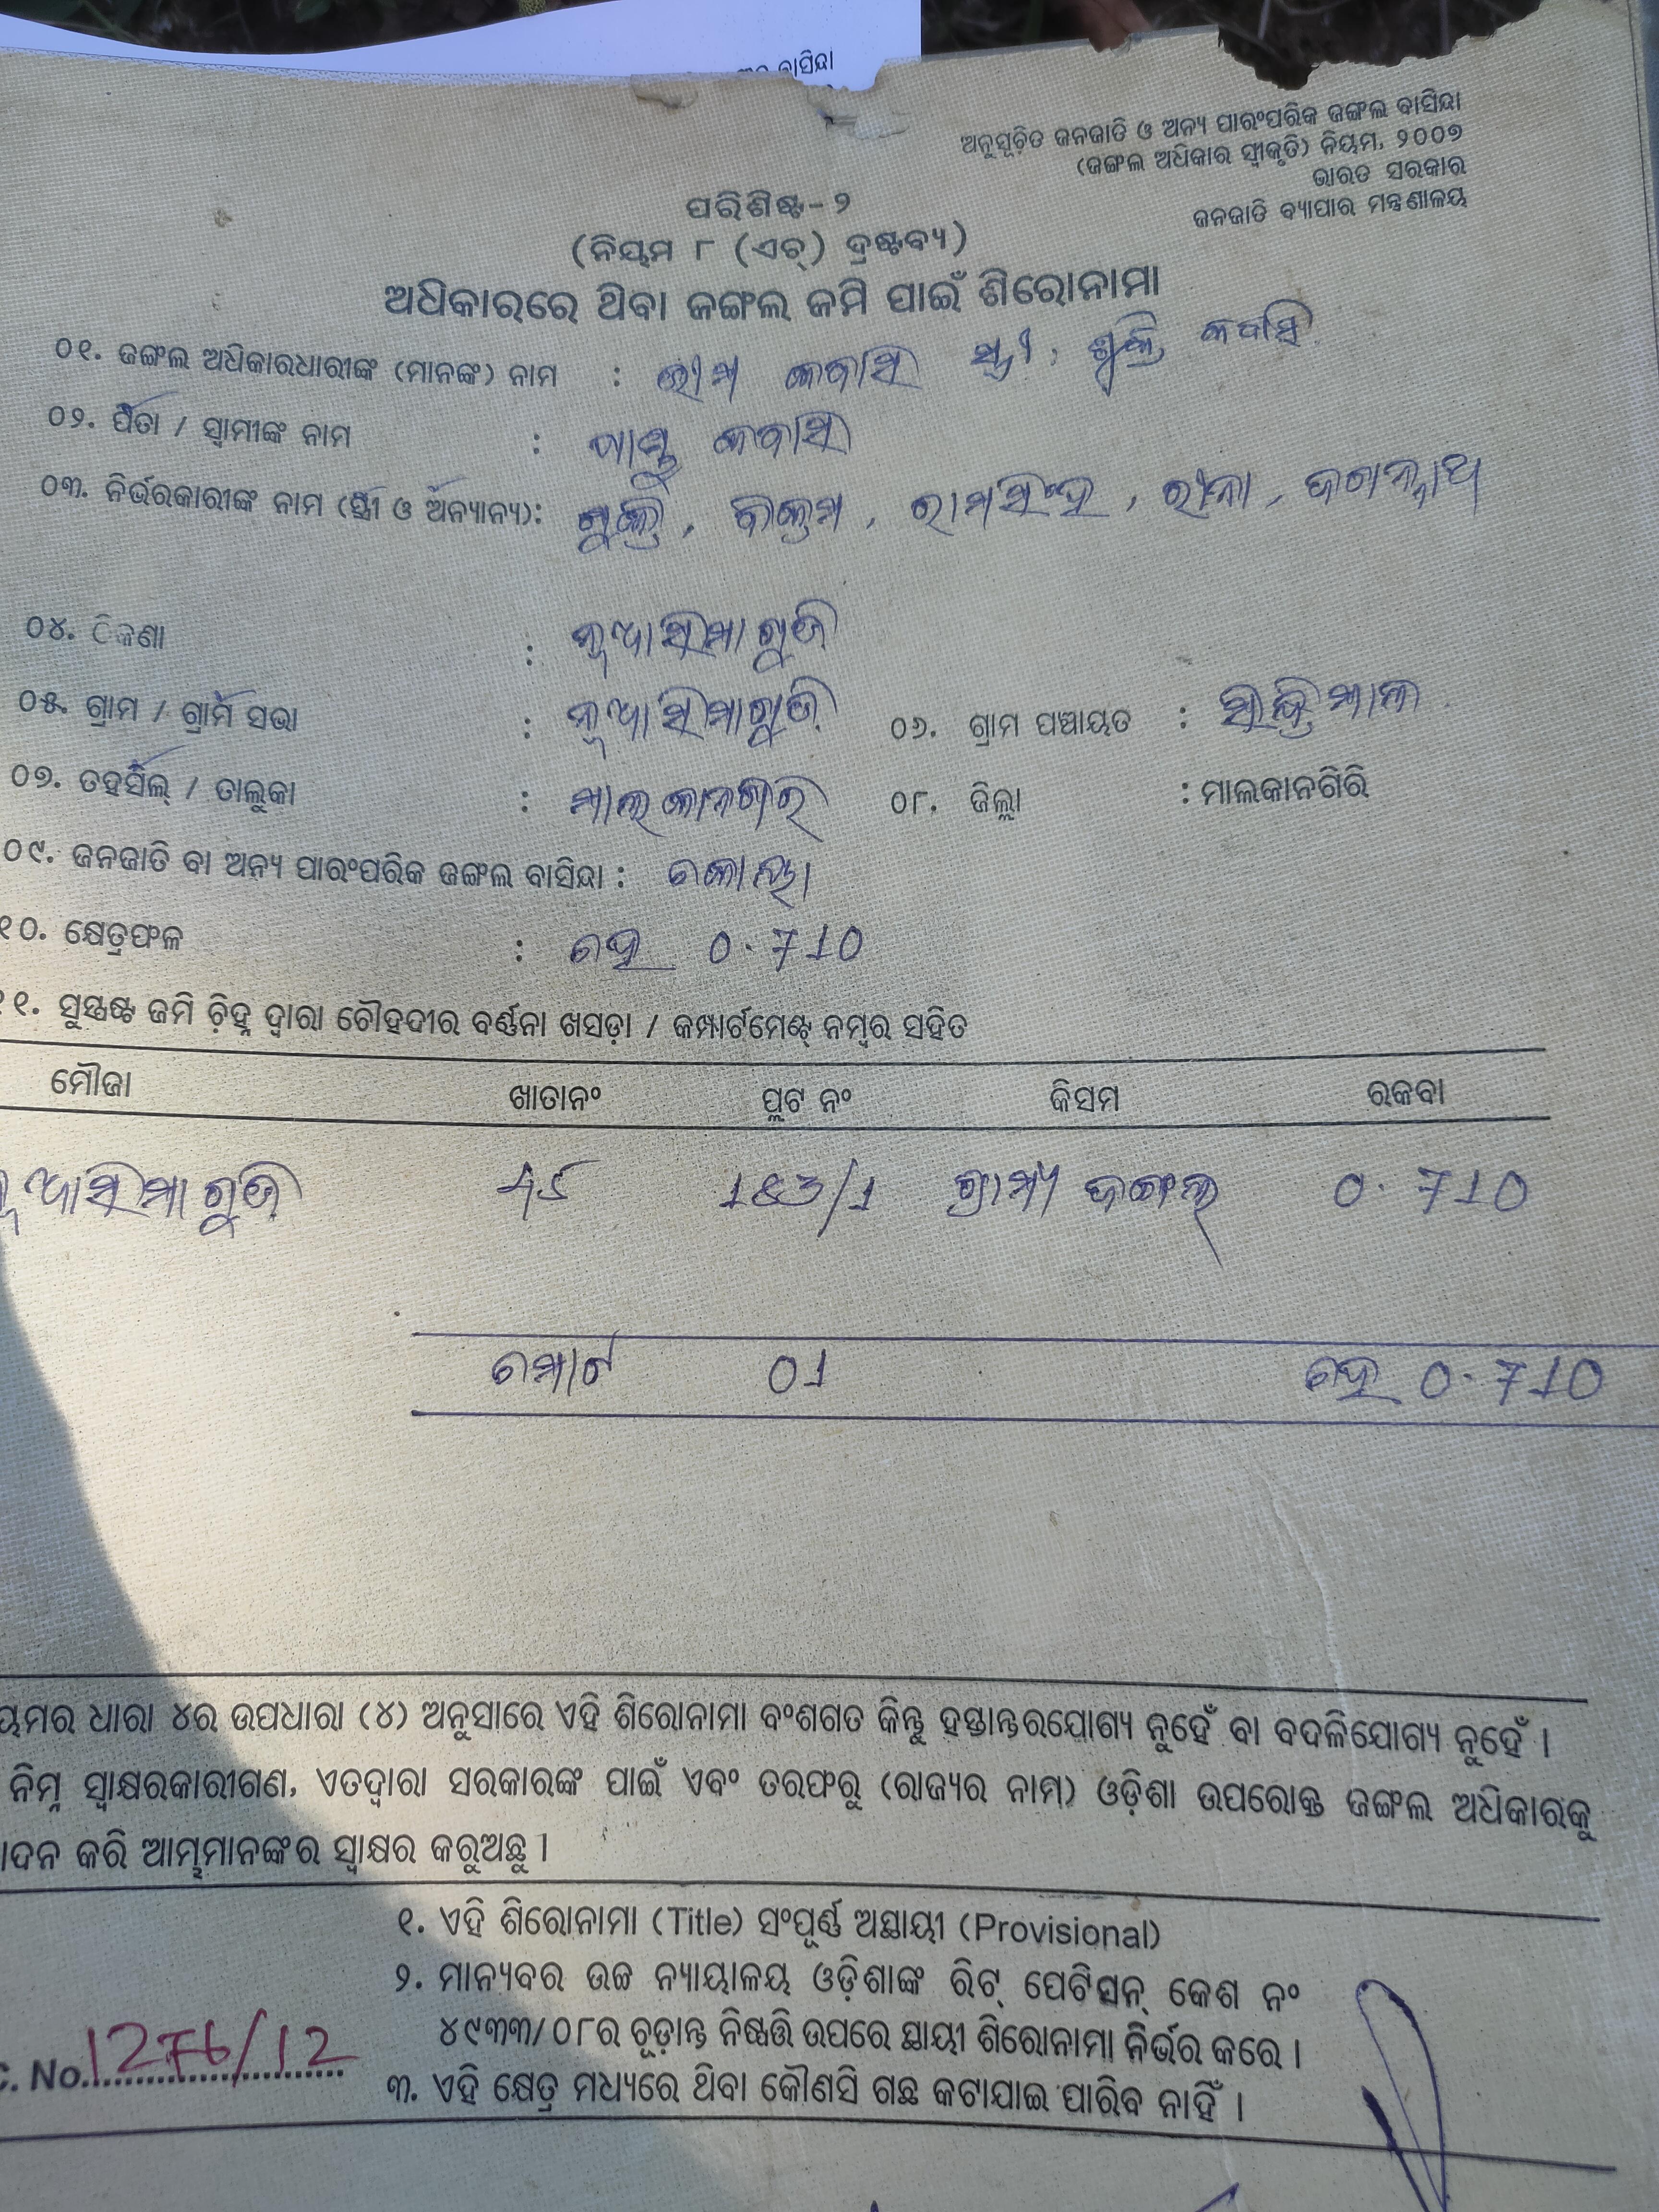 ବାସିନ୍ଦା
ଅନୁସୂଚିତ ଜନଜାତି ଓ ଅନ୍ୟ ପାରଂପରିକ ଜଙ୍ଗଲ ବାସିନ୍ଦା
(ଜଙ୍ଗଲ ଅଧିକାର ସ୍ୱୀକୃତି) ନିୟମ, ୨୦୦୭
ଭାରତ ସରକାର
ଜନଜାତି ବ୍ୟାପାର ମନ୍ତ୍ରଣାଳୟ
ପରିଶିଷ୍ଟ-୨
(ନିୟମ ୮ (ଏଚ୍) ଦ୍ରଷ୍ଟବ୍ୟ)
ଅଧିକାରରେ ଥିବା ଜଙ୍ଗଲ ଜମି ପାଇଁ ଶିରୋନାମା
୦୧. ଜଙ୍ଗଲ ଅଧିକାରଧାରୀଙ୍କ (ମାନଙ୍କ) ନାମ : ଭୀମ କବାସି ସ୍ତ୍ରୀ: କବାସି
୦୨. ପିତା / ସ୍ୱାମୀଙ୍କ ନାମ : କବାସି
୦୩. ନିର୍ଭରକାରୀଙ୍କ ନାମ (ସ୍ତ୍ରୀ ଓ ଅନ୍ୟାନ୍ୟ): ବିକ୍ରମ, ରାମସିଂହ, ରୀନା, ଜଗନ୍ନାଥ
୦୪. ଠିକଣା : ନୂଆସିମାଗୁଡ଼ି
୦୫. ଗ୍ରାମ / ଗ୍ରାମ ସଭା : ନୂଆସିମାଗୁଡ଼ି ୦୬. ଗ୍ରାମ ପଞ୍ଚାୟତ :
୦୭. ତହସିଲ୍ / ତାଲୁକା : ମାଲକାନଗିରି ୦୮. ଜିଲ୍ଲା : ମାଲକାନଗିରି
୦୯. ଜନଜାତି ବା ଅନ୍ୟ ପାରଂପରିକ ଜଙ୍ଗଲ ବାସିନ୍ଦା : କୋୟା
୧୦. କ୍ଷେତ୍ରଫଳ : ହେ 0.710
୧୧. ସୁସ୍ପଷ୍ଟ ଜମି ଚିହ୍ନ ଦ୍ୱାରା ଚୌହଦୀର ବର୍ଣ୍ଣନା ଖସଡ଼ା / କମ୍ପାର୍ଟମେଣ୍ଟ୍ ନମ୍ବର ସହିତ
ମୌଜା ଖାତାନଂ ପ୍ଲଟ ନଂ କିସମ ରକବା
ନୂଆସିମାଗୁଡ଼ି ଗ୍ରାମ୍ୟ ଜଙ୍ଗଲ 0.710
ମୋଟ 01 ହେ 0.710
ୟମର ଧାରା ୪ର ଉପଧାରା (୪) ଅନୁସାରେ ଏହି ଶିରୋନାମା ବଂଶଗତ କିନ୍ତୁ ହସ୍ତାନ୍ତରଯୋଗ୍ୟ ନୁହେଁ ବା ବଦଳିଯୋଗ୍ୟ ନୁହେଁ ।
ନିମ୍ନ ସ୍ୱାକ୍ଷରକାରୀଗଣ, ଏତଦ୍ୱାରା ସରକାରଙ୍କ ପାଇଁ ଏବଂ ତରଫରୁ (ରାଜ୍ୟର ନାମ) ଓଡ଼ିଶା ଉପରୋକ୍ତ ଜଙ୍ଗଲ ଅଧିକାରକୁ
ାଦନ କରି ଆମ୍ଭମାନଙ୍କର ସ୍ୱାକ୍ଷର କରୁଅଛୁ ।
୧. ଏହି ଶିରୋନାମା (Title) ସଂପୂର୍ଣ୍ଣ ଅସ୍ଥାୟୀ (Provisional)
୨. ମାନ୍ୟବର ଉଚ୍ଚ ନ୍ୟାୟାଳୟ ଓଡ଼ିଶାଙ୍କ ରିଟ୍ ପେଟିସନ୍ କେଶ ନଂ
୪୯୩୩/୦୮ର ଚୂଡ଼ାନ୍ତ ନିଷ୍ପତ୍ତି ଉପରେ ସ୍ଥାୟୀ ଶିରୋନାମା ନିର୍ଭର କରେ ।
C. No. 1276/12
୩. ଏହି କ୍ଷେତ୍ର ମଧ୍ୟରେ ଥିବା କୌଣସି ଗଛ କଟାଯାଇ ପାରିବ ନାହିଁ ।